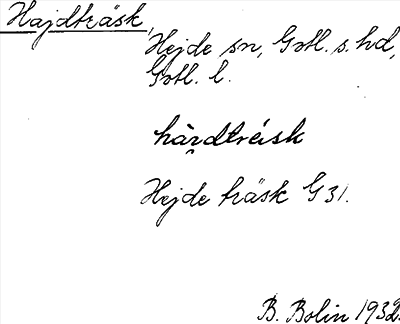 Hajdträsk,
Hejde sn, Gotl. s. hd,
Gotl. l.
hàr̯dtréisk
Hejde träsk G 31.
B. Bolin 1932.